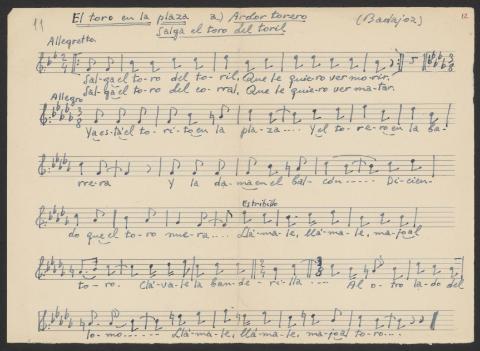 11 El toro en la plaza a) Ardor torero (Badajoz) 12
Salga el toro del toril
Allegretto
Sal-ga el to-ro del to-ril, Que le quie-ro ver mo-rir.
Sal-ga el to-ro del co-rral, Que le quie-ro ver ma-tar.
Allegro
Ya es-tá el to-ri-to en la pla-za.... Y el to-re-ro en la ba-
rre-ra Y la da-ma en el bal-cón----- Di-cien-
Estribillo
do que el to-ro mue-ra.... Llá-ma-le, llá-ma-le, ma-jo al
to-ro. Clá-va-le la ban-de-ri-lla.... Al o-tro la-do del
lo-mo...... Llá-ma-le, llá-ma-le, ma-jo al to-ro....